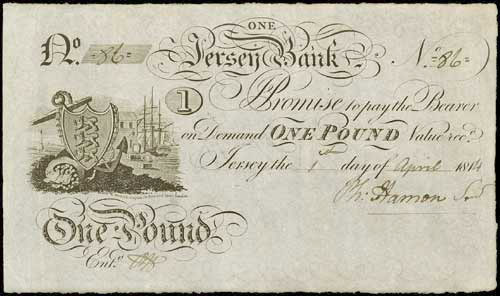 ONE
No. 86 Jersey Bank No. 86
1 Promise to pay the Bearer
on Demand ONE POUND Value recd.
Jersey the 1st day of April 1814
Ph: Hamon
One Pound
Entd.